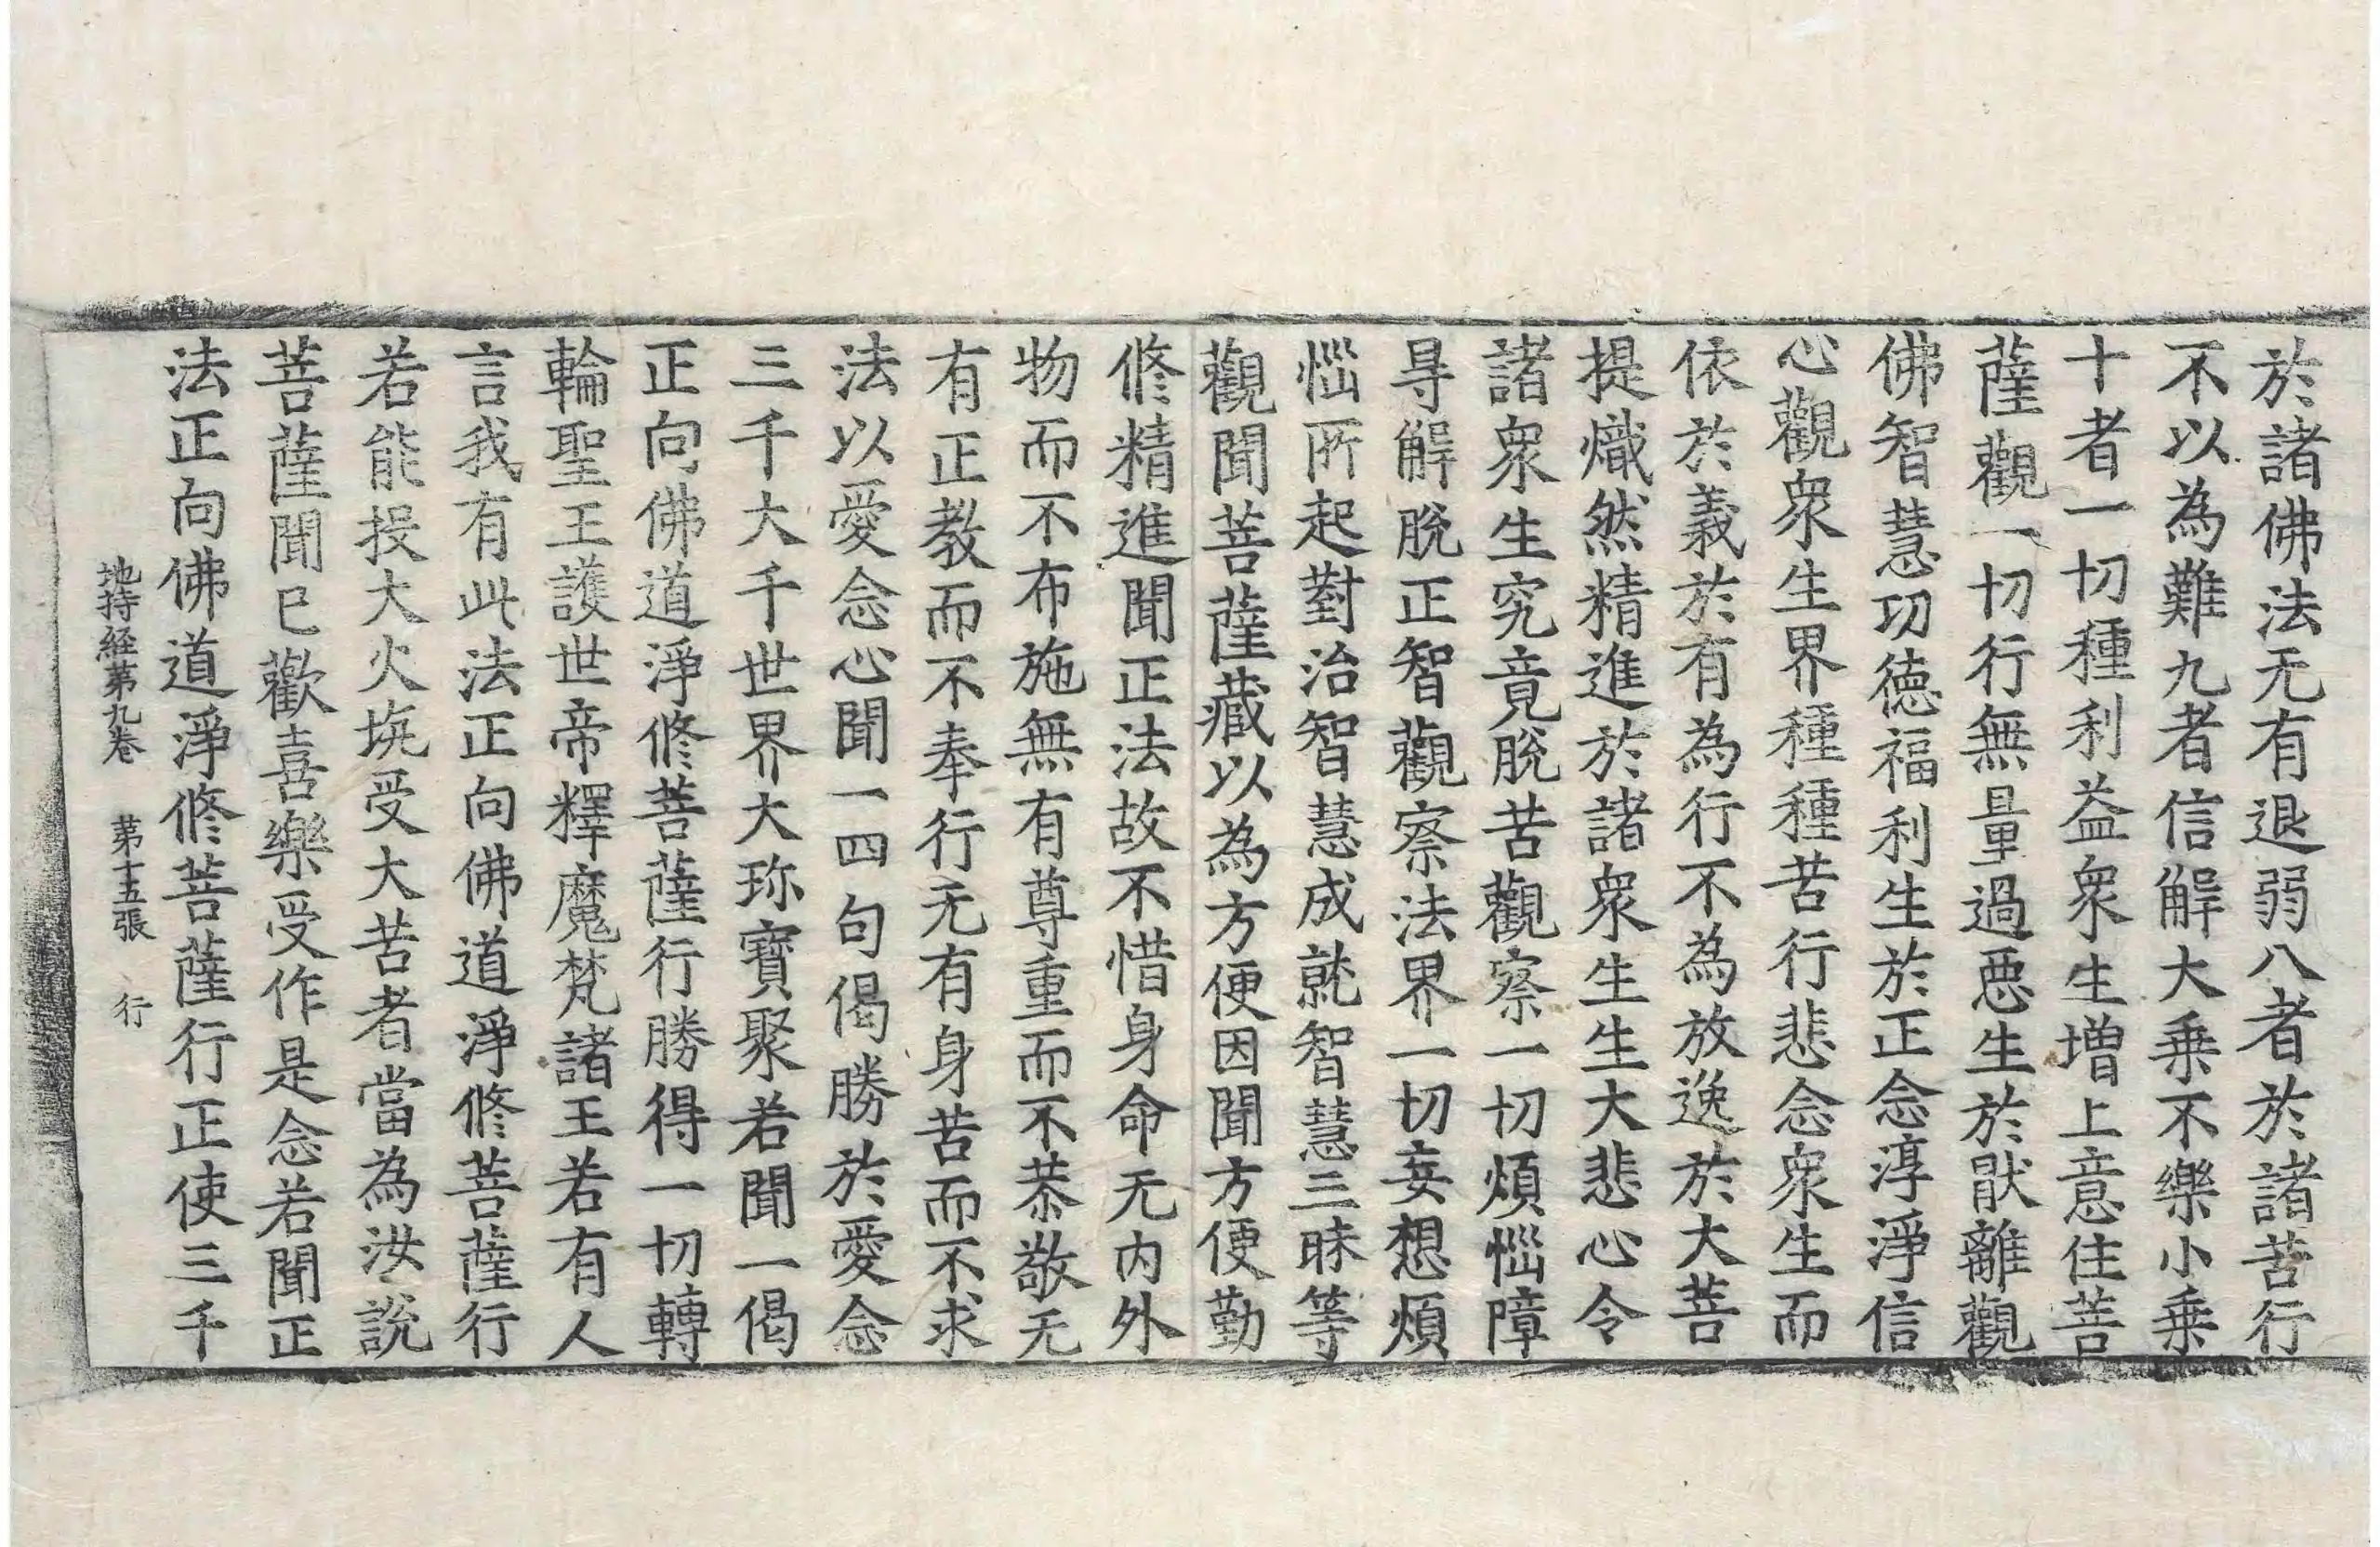 於諸佛法无有退弱八者於諸苦行
不以為難九者信解大乗不樂小乗
十者一切種利益衆生增上意住菩
薩觀一切行無量過惡生於猒離觀
佛智慧功德福利生於正念淳淨信
心觀衆生界種種苦行悲念衆生而
依於義於有為行不為放逸於大菩
提熾然精進於諸衆生生大悲心令
諸衆生究竟脫苦觀察一切煩惱障
㝵解脫正智觀察法界一切妄想煩
惱所起對治智慧成就智慧三昧等
觀聞菩薩藏以為方便因聞方便勤
修精進聞正法故不惜身命无內外
物而不布施無有尊重而不恭敬无
有正教而不奉行无有身苦而不求
法以愛念心聞一四句偈勝於愛念
三千大千世界大珎寶聚若聞一偈
正向佛道淨修菩薩行勝得一切轉
輪聖王護世帝釋魔梵諸王若有人
言我有此法正向佛道淨修菩薩行
若能投大火坑受大苦者當為汝說
菩薩聞已歡喜樂受作是念若聞正
法正向佛道淨修菩薩行正使三千
地持経第九卷 第十五張 行